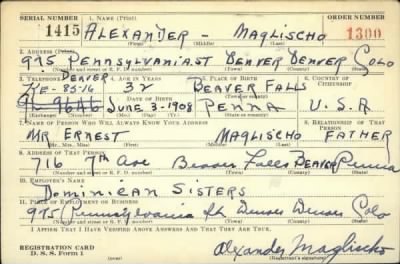 SERIAL NUMBER 1. NAME (Print) ORDER NUMBER
1415 ALEXANDER - MAGLISCHO 1300
(First) (Middle) (Last)
2. ADDRESS (Print)
975 PENNSYLVANIA ST DENVER DENVER COLO
(Number and street or R. F. D. number) (Town) (County) (State)
3. TELEPHONE 4. AGE IN YEARS 5. PLACE OF BIRTH 6. COUNTRY OF CITIZENSHIP
DENVER
KE-8516 32 BEAVER FALLS
DATE OF BIRTH (Town or county)
9646 JUNE 3-1908 PENNA U.S.A
(Exchange) (Number) (Mo.) (Day) (Yr.) (State or country)
7. NAME OF PERSON WHO WILL ALWAYS KNOW YOUR ADDRESS 8. RELATIONSHIP OF THAT PERSON
MR ERNEST MAGLISCHO FATHER
(Mr., Mrs., Miss) (First) (Middle) (Last)
9. ADDRESS OF THAT PERSON
716 7th Ave Beaver Falls BEAVER Penna
(Number and street or R. F. D. number) (Town) (County) (State)
10. EMPLOYER'S NAME
Dominican Sisters
11. PLACE OF EMPLOYMENT OR BUSINESS
975 Pennsylvania St. Denver Denver Colo
(Number and street or R. F. D. number) (Town) (County) (State)
I AFFIRM THAT I HAVE VERIFIED ABOVE ANSWERS AND THAT THEY ARE TRUE.
REGISTRATION CARD
D. S. S. Form 1
Alexander Maglischo
(Registrant's signature)